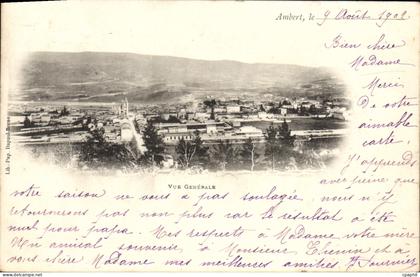 Ambert, le 9 Août 1902
Bien chère
Madame
Merci
de votre
aimable
carte,
J'apprends
avec peine que
VUE GÉNÉRALE
votre saison ne vous a pas soulagée, nous n'y
retournerons pas non plus car le resultat a été
nul pour papa. Mes respects à Madame votre mère
Un amical souvenir à Monsieur et à
vous chère Madame mes meilleures amitiés
Lib. Pap.